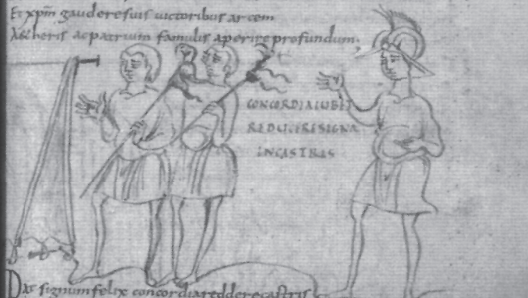 Et xpm̄ gaudere suis uictoribus arcem
Aetheris ac patrium famulis aperire profundum;
CONCORDIA IUBET
REDUCERE SIGNA
IN CASTRAS
Dat signum felix concordia reddere castris